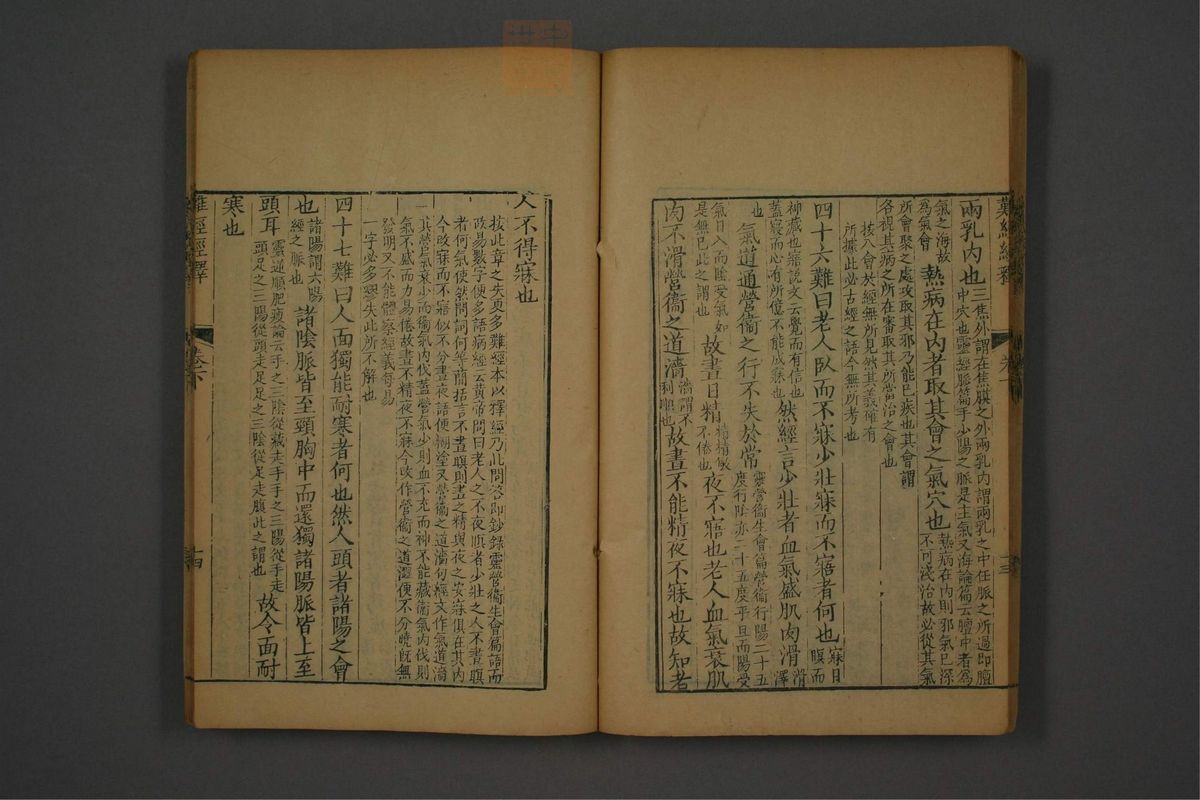 難經經釋
卷下
十三
兩乳內也三焦外謂在焦膜之外兩乳內謂兩乳之中任脈之所過即膻
中穴也靈經脈篇手少陽之脈是主氣又海論篇云膻中者為
氣之海故為氣會熱病在內者取其會之氣穴也熱病在內則邪氣已深不可淺治故必從其氣
所會聚之處攻取其邪乃能已疾也其會謂
各視其病之所在審取其所當治之會也
按八會於經無所見然其義確有
所據此必古經之語今無所考也
四十六難曰老人臥而不寐少壯寐而不寤者何也寐目瞑而
神藏也寤說文云覺而有信也
蓋寢而心有所憶不能成寐也然經言少壯者血氣盛肌肉滑滑澤也
氣道通營衞之行不失於常靈營衞生會篇營衞行陽二十五度行陰亦二十五度平旦而陽受
氣日入而陰受氣如是無已此之謂也故晝日精精精敏不倦也夜不寤也老人血氣衰肌
肉不滑營衞之道濇濇謂不利順也故晝不能精夜不寐也故知老
人不得寐也
按此章之失更多難經本以釋經乃此問答即鈔錄靈營衞生會篇語而
改易數字便多語病經云黃帝問曰老人之不夜瞑者少壯之人不晝瞑
者何氣使然問詞何等簡括言不晝瞑則晝之精與夜之安寐俱在其內
今改寐而不寤似不分晝夜語便糊塗又營衞之道濇句經文作氣道濇
其營氣衰少而衞氣內伐蓋營氣少則血不充而神不能藏衞氣內伐則
氣不盛而力易倦故晝不精夜不寐今改作營衞之道濇便不分曉既無
發明又不能體察經義每易
一字必多謬失此所不解也
四十七難曰人面獨能耐寒者何也然人頭者諸陽之會
也諸陽謂六陽經之脈也諸陰脈皆至頸胸中而還獨諸陽脈皆上至
頭耳靈逆順肥瘦論云手之三陰從藏走手手之三陽從手走頭足之三陽從頭走足足之三陰從足走腹此之謂也故令面耐
寒也
難經經釋
卷下
十四